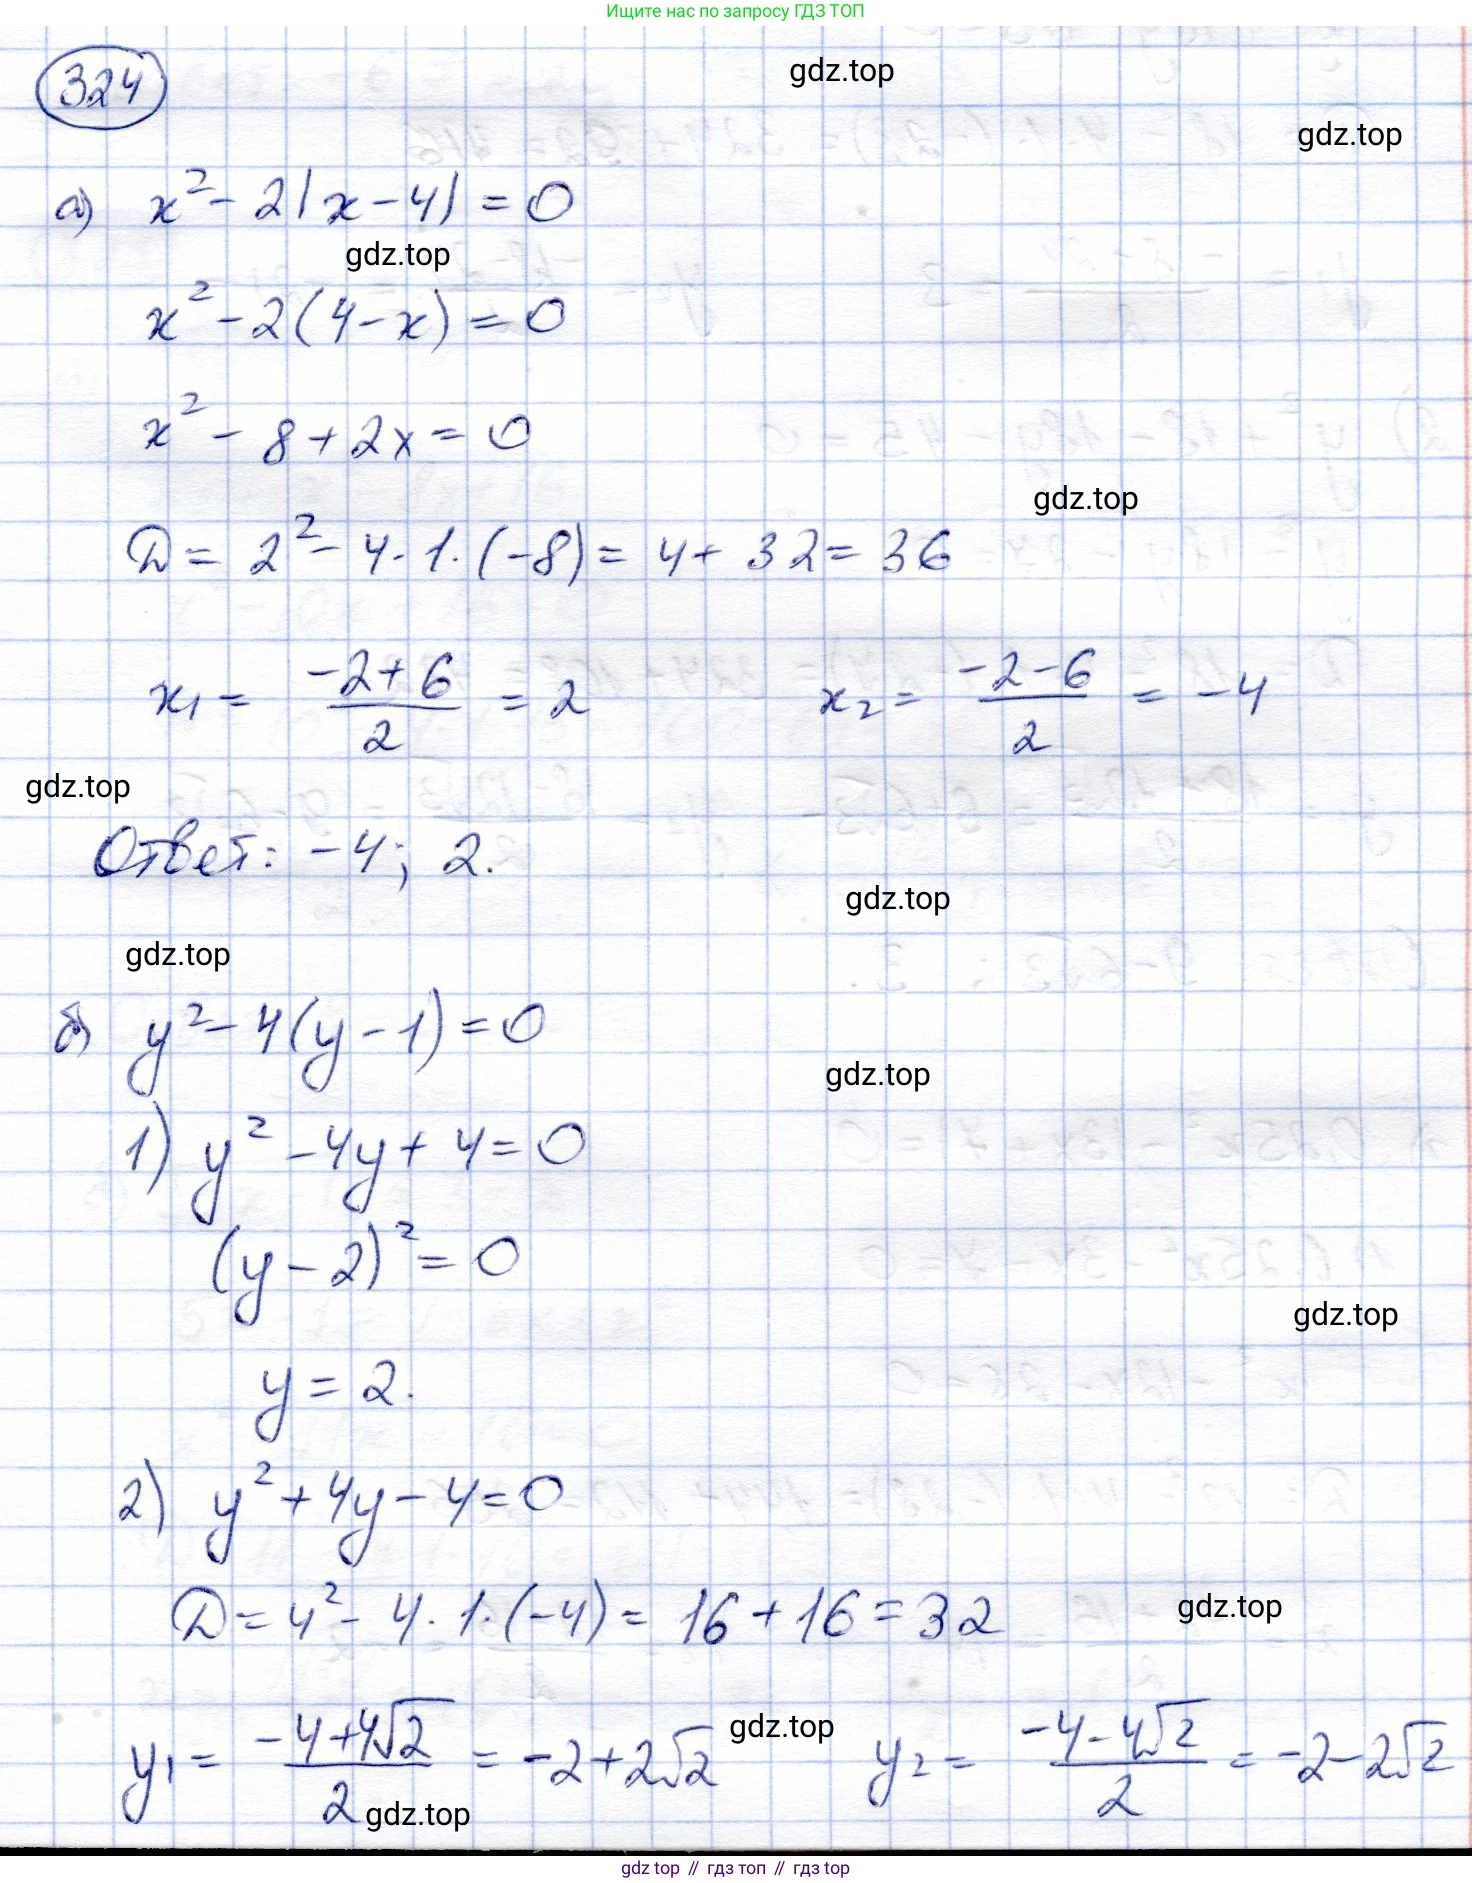 Ищите нас по запросу ГДЗ ТОП
324
gdz.top
gdz.top
а) x² - 2|x - 4| = 0
gdz.top
x² - 2(4 - x) = 0
x² - 8 + 2x = 0
gdz.top
D = 2² - 4 · 1 · (-8) = 4 + 32 = 36
x₁ = (-2 + 6)/2 = 2 x₂ = (-2 - 6)/2 = -4
gdz.top
Ответ: -4; 2.
gdz.top
gdz.top
б) y² - 4(y - 1) = 0
gdz.top
1) y² - 4y + 4 = 0
(y - 2)² = 0
gdz.top
y = 2.
2) y² + 4y - 4 = 0
D = 4² - 4 · 1 · (-4) = 16 + 16 = 32
gdz.top
y₁ = (-4 + 4√2)/2 = -2 + 2√2 gdz.top y₂ = (-4 - 4√2)/2 = -2 - 2√2
gdz.top
gdz top // гдз топ // гдз top